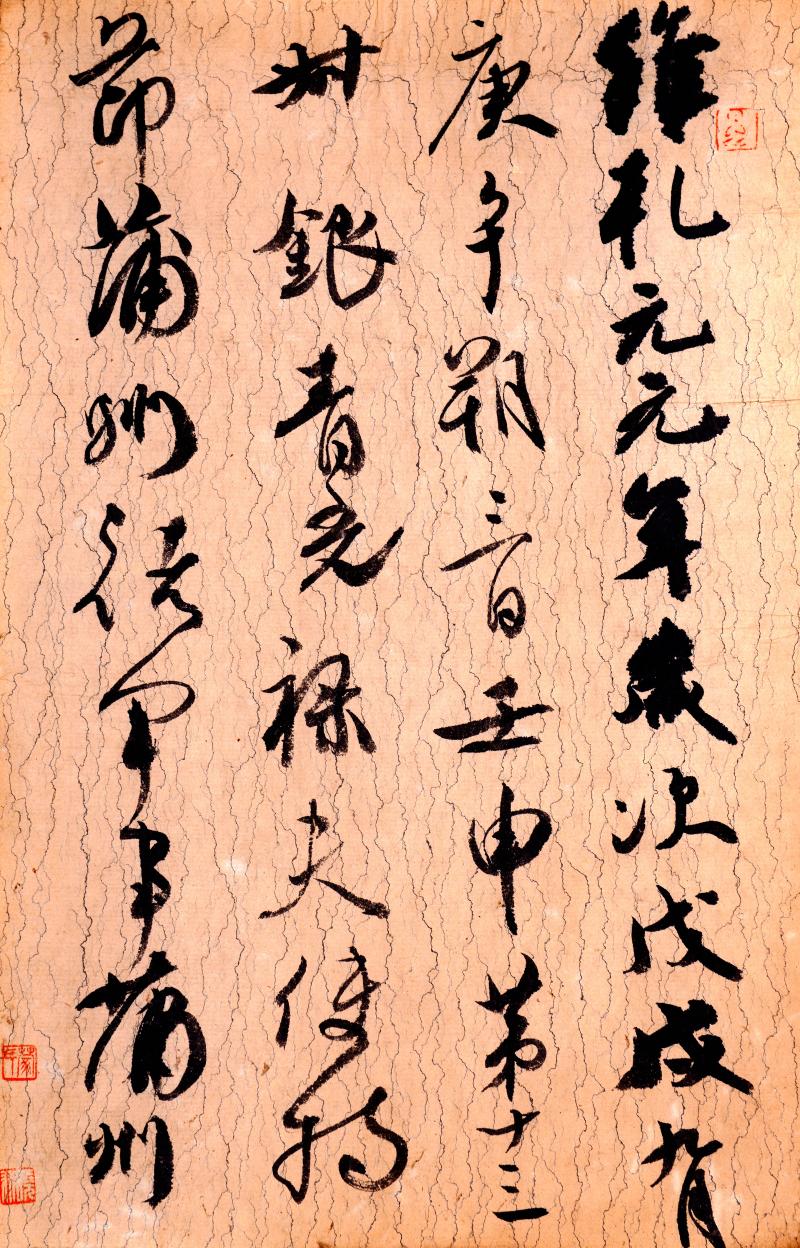 維乾元元年歲次戊戌九月
庚午朔三日壬申第十三
叔銀青光祿夫使持
節蒲州諸軍事蒲州